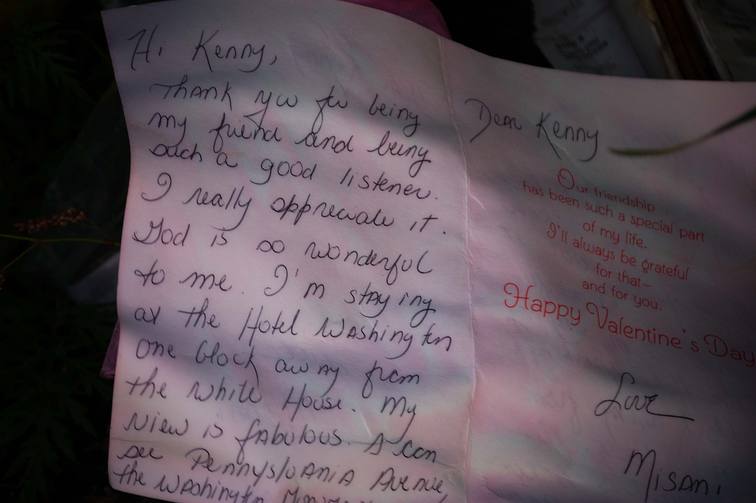 Hi Kenny,
Thank you for being
my friend and being
such a good listener.
I really appreciate it.
God is so wonderful
to me. I'm staying
at the Hotel Washington
one block away from
the White House. My
view is fabulous. I can
see Pennsylvania Avenue,
the Washington
Dear Kenny
Our friendship
has been such a special part
of my life.
I'll always be grateful
for that—
and for you.
Happy Valentine's Day
Love
Misani